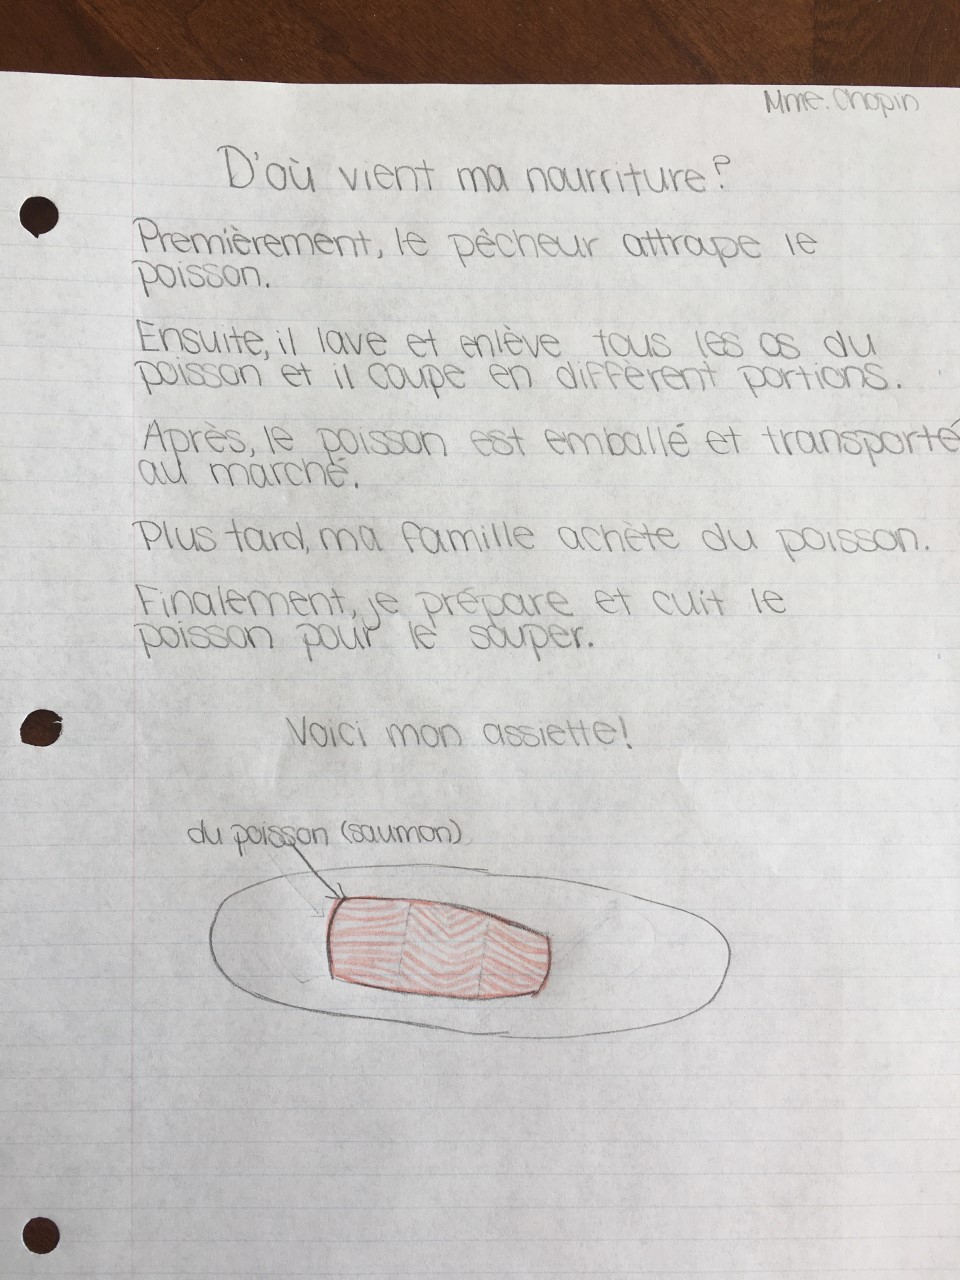 Mme. Chopin
D'où vient ma nourriture?
Premièrement, le pêcheur attrape le
poisson.
Ensuite, il lave et enlève tous les os du
poisson et il coupe en différent portions.
Après, le poisson est emballé et transporté
au marché.
Plus tard, ma famille achète du poisson.
Finalement, je prépare et cuit le
poisson pour le souper.
Voici mon assiette!
du poisson (saumon)